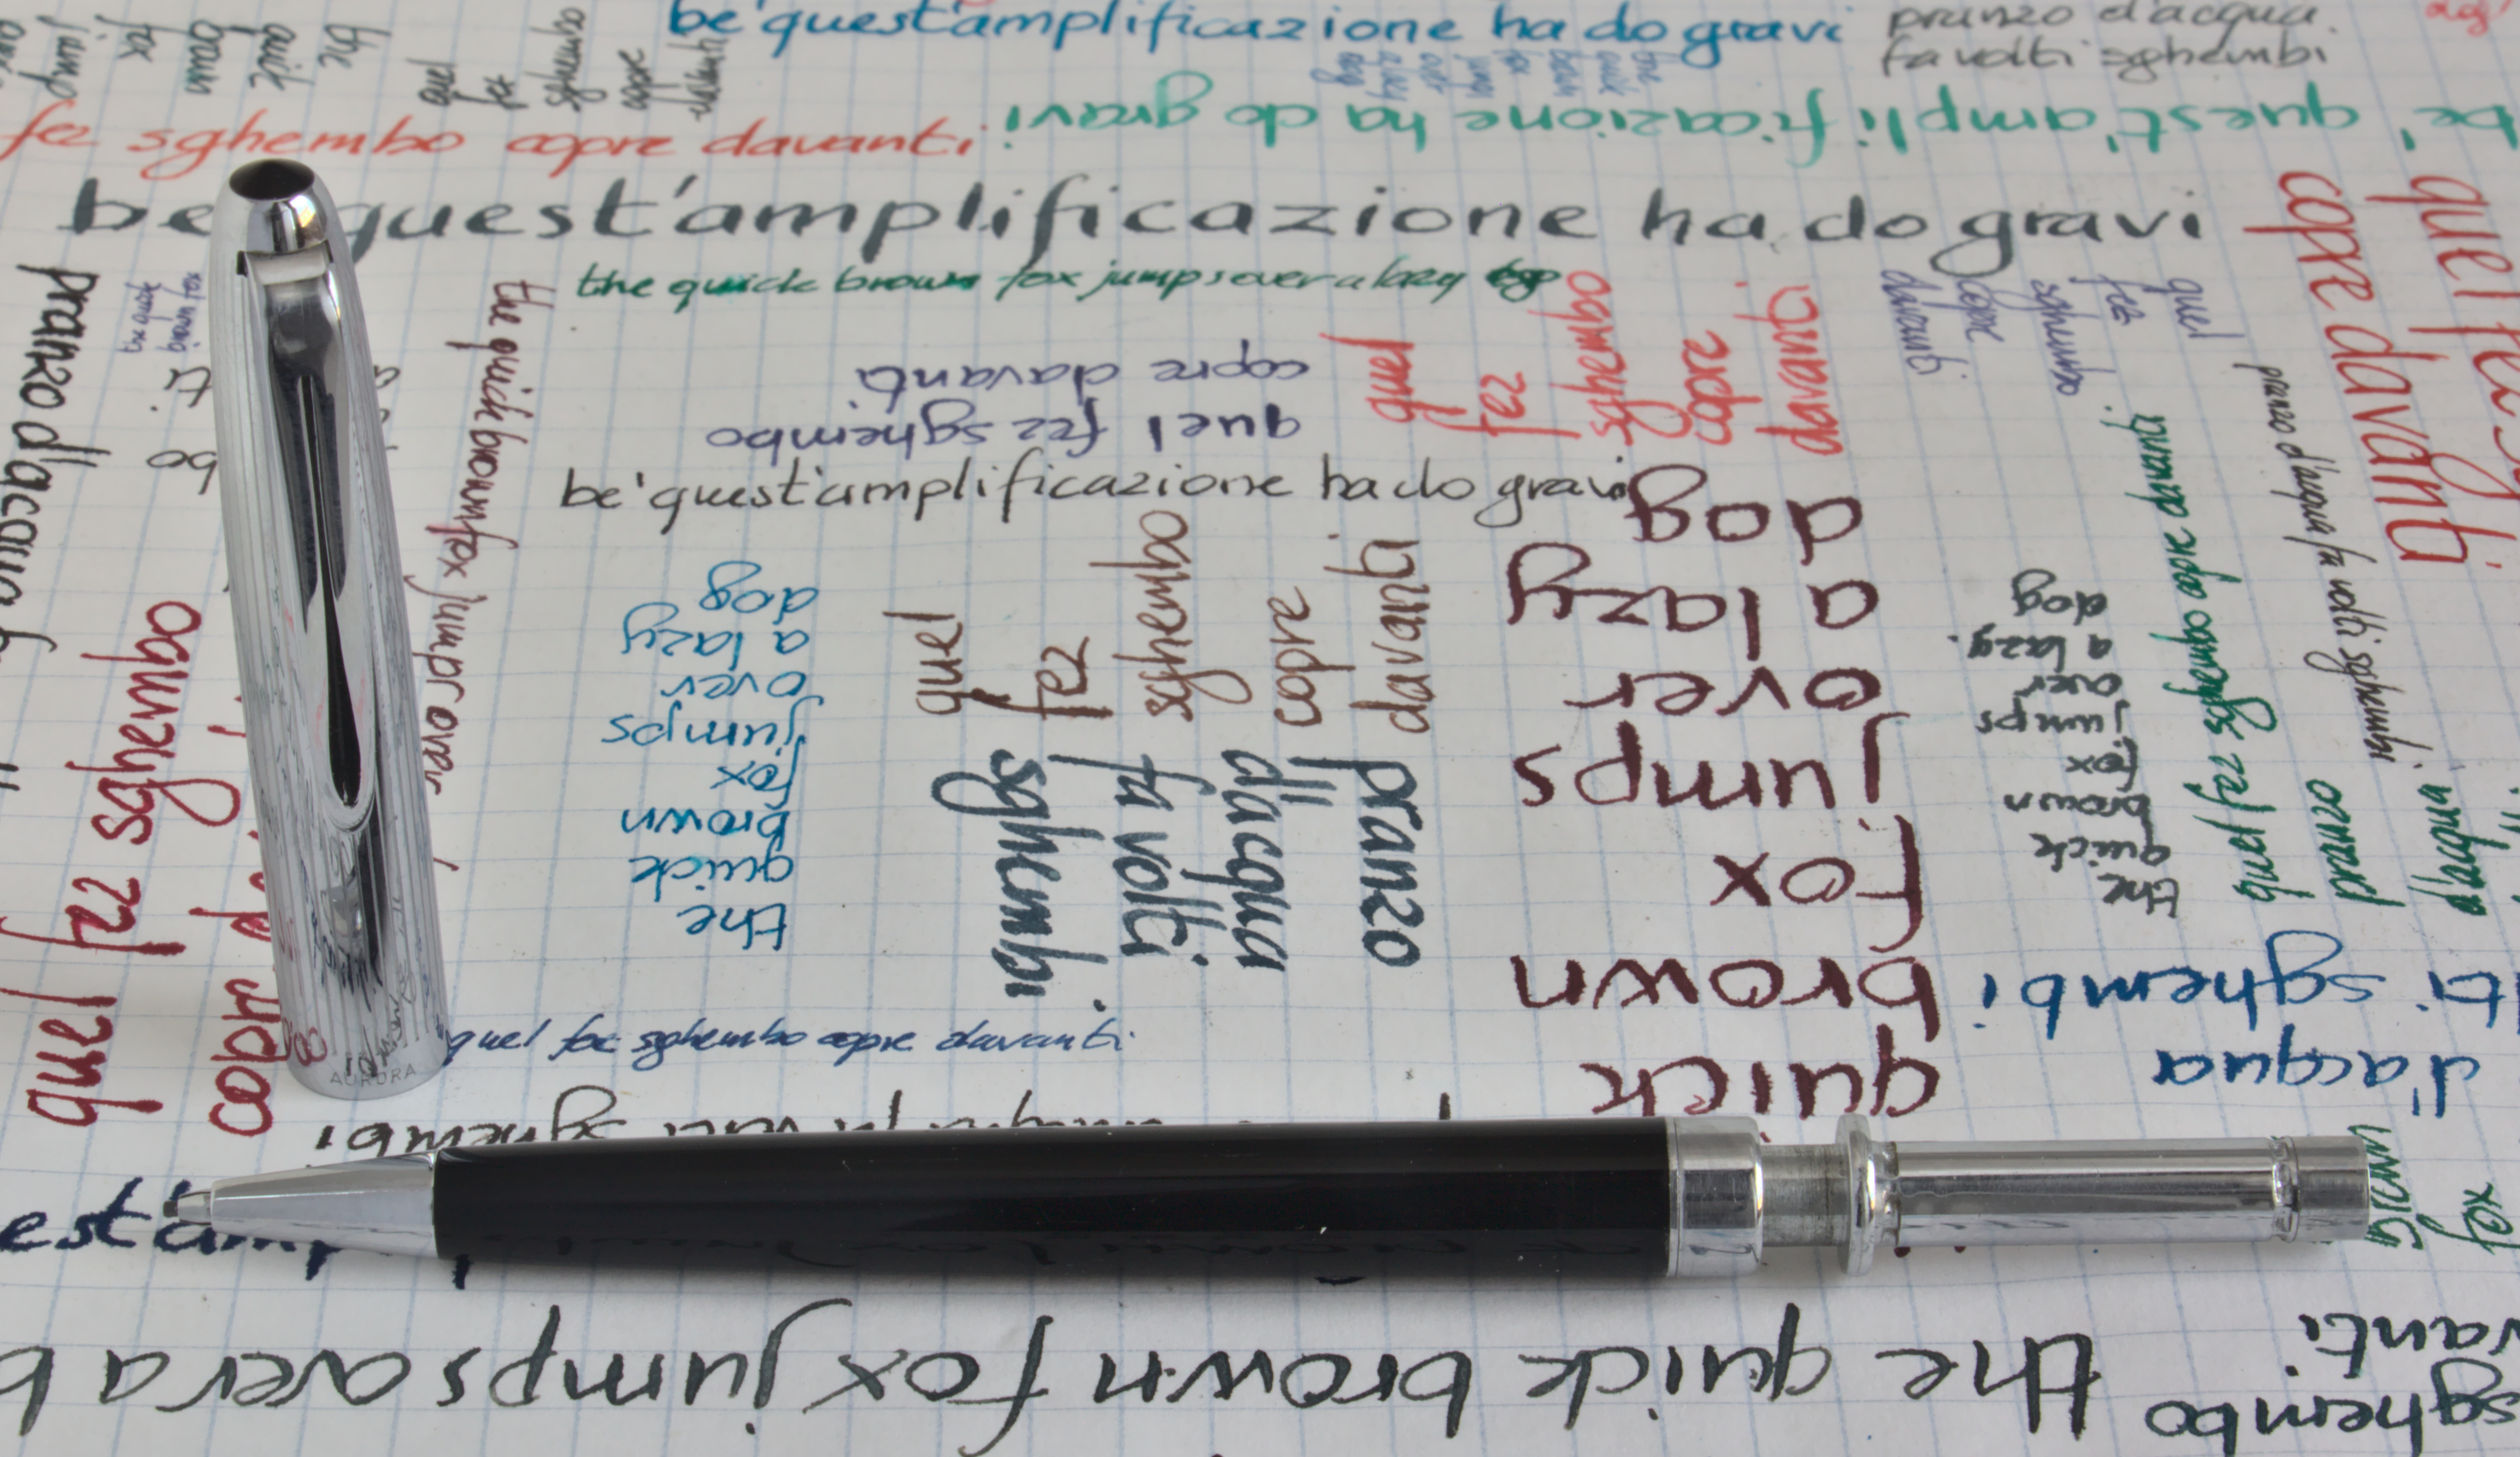 be'quest'amplificazione ha do gravi
pranzo d'acqua
fa volti sghembi
the
quick
brown
fox
jump
quel
fez
sghembo
copre
davanti
the
quick
brown
fox
fez sghembo copre davanti
be' quest'amplificazione ha do gravi
be quest'amplificazione ha do gravi
quel fez
copre davanti
the quick brown fox jumps over a lazy
the quick
brown fox
pranzo d'acqua
the quick brown fox jumps over
quel fez sghembo
copre davanti
quel
fez
sghembo
copre
davanti
quel
fez
sghembo
copre
davanti
be'quest'amplificazione ha do gravi
pranzo d'acqua fa volti sghembi
quel fez sghembo copre davanti
the
quick
brown
fox
jumps
over
a lazy
dog
quel
fez
sghembo
copre
davanti
pranzo
d'acqua
fa volti
sghembi
quick
brown
fox
jumps
over
a lazy
dog
the
quick
brown
fox
jumps
over
a lazy.
dog
pranzo
d'acqua
quel fez sghembo
copr
d'acqua
ti sghembi
quel fez sghembo copre davanti
AURORA
sghembi
est'am
fox
the quick brown fox jumps over a b
sghembo
vanti